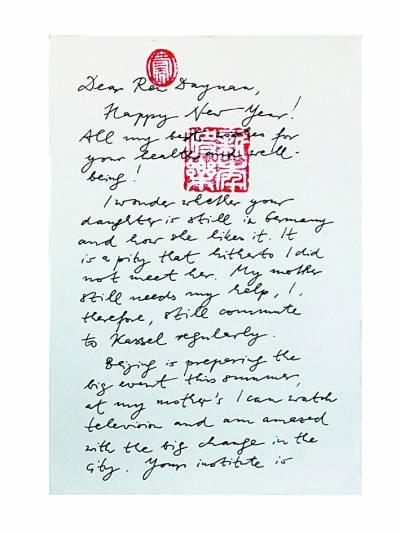 Dear Ren Daynan,
Happy New Year!
All my best wishes for
your health and well-
being!
I wonder whether your
daughter is still in Germany
and how she likes it. It
is a pity that hitherto I did
not meet her. My mother
still needs my help, I,
therefore, still commute
to Kassel regularly.
Beijing is preparing the
big event this summer,
at my mother's I can watch
television and am amazed
with the big change in the
city. Your institute is
新年